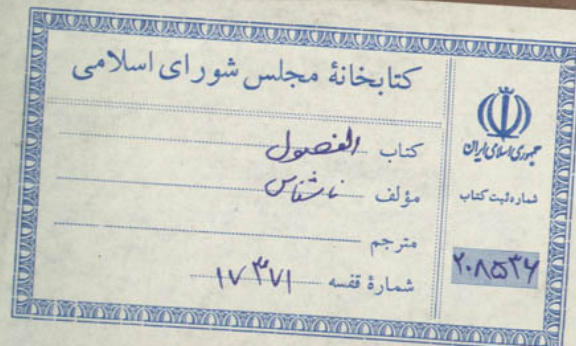 کتابخانهٔ مجلس شورای اسلامی
کتاب الفصول
مؤلف ناشناس
مترجم
شمارهٔ قفسه ۱۷۳۷۱
جمهوری اسلامی ایران
شماره ثبت کتاب
۲۰۸۵۳۶